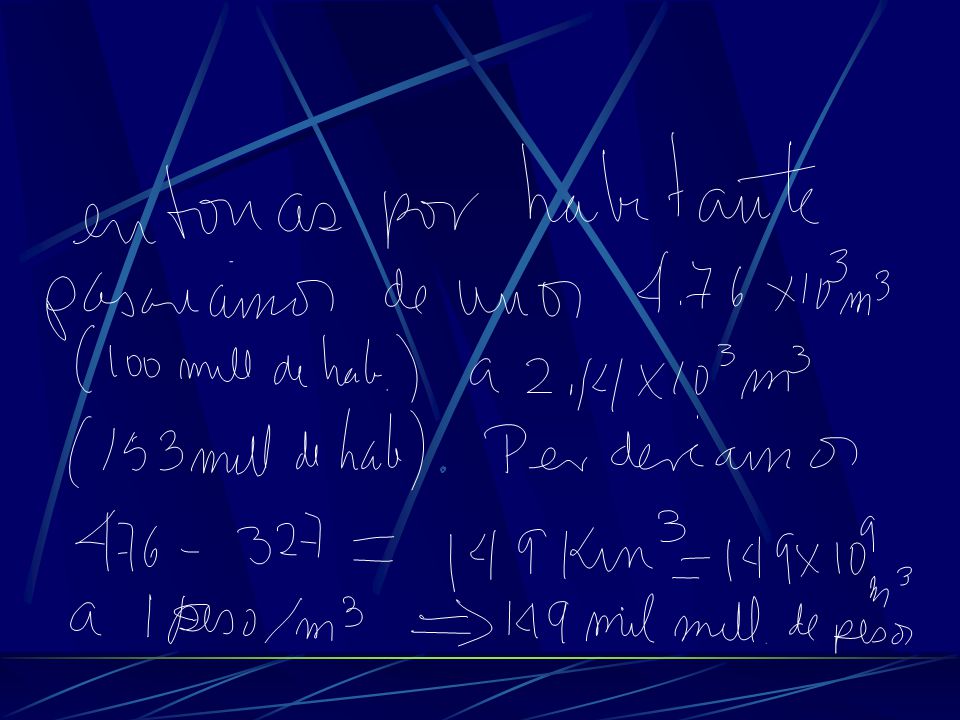 entonces por habitante
pasariamos de unos 4.76 x10³ m³
(100 mill de hab.) a 2.14 x 10³ m³
(153 mill de hab). Perderiamos
476 - 327 = 149 Km³ = 149x10⁹ m³
a 1 peso/m³ ⇒ 149 mil mill. de pesos